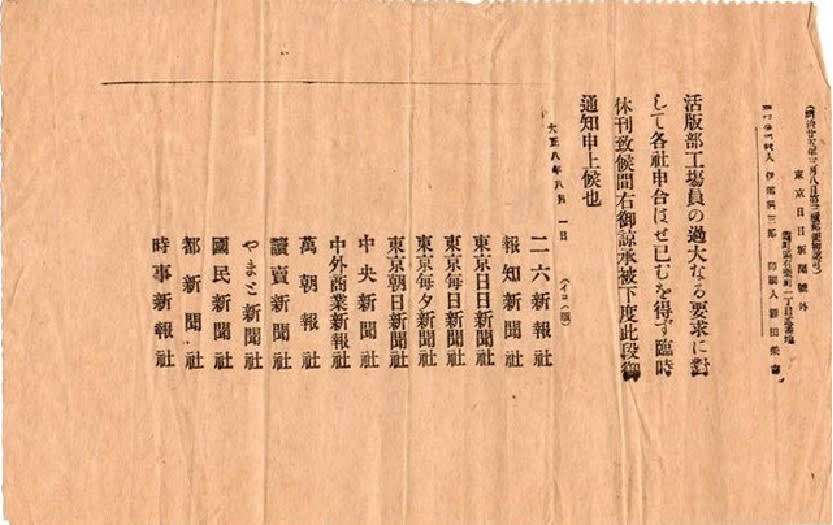 東京日日新聞號外
活版部工場員の過大なる要求に對
して各社申合はせ已むを得ず臨時
休刊致候間右御諒承被下度此段御
通知申上候也
大正八年八月一日 (イロハ順)
二六新報社
報知新聞社
東京日日新聞社
東京毎日新聞社
東京毎夕新聞社
東京朝日新聞社
中央新聞社
中外商業新報社
萬朝報社
讀賣新聞社
やまと新聞社
國民新聞社
都新聞社
時事新報社